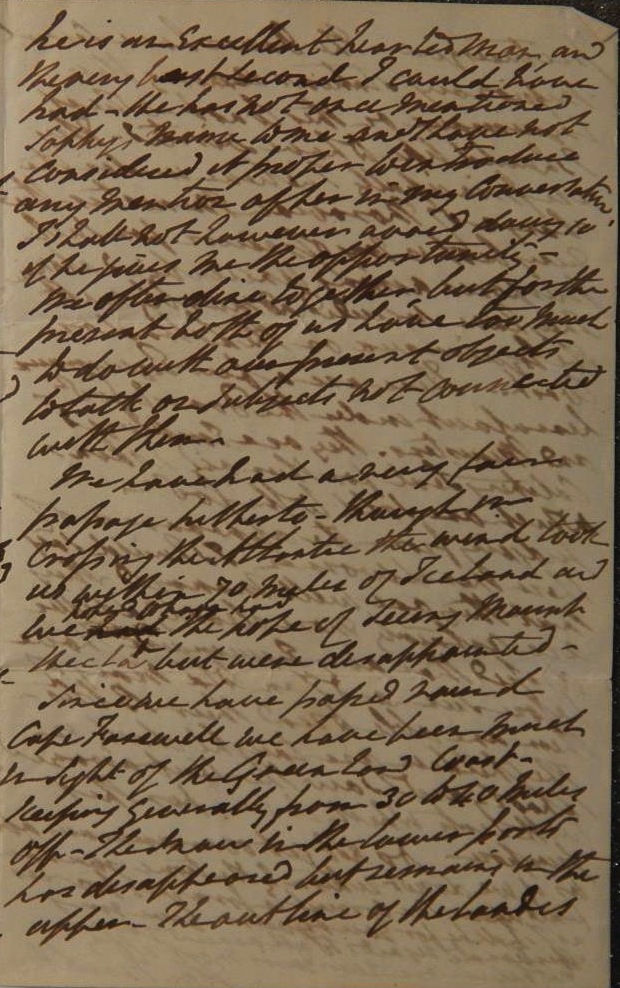 he is an excellent hearted man and
the very best second I could have
had - He has not once mentioned
Sophy's name to me and I have not
considered it proper to introduce
any mention of her in my conversation
I shall not however avoid doing so
if he gives me the opportunity -
We often dine together but for the
present both of us have too much
to do with our present objects
to talk on subjects not connected
with them.
We have had a very fair
passage hitherto - though in
crossing the Atlantic the wind took
us within 70 miles of Iceland and
we had the hope of seeing Mount
Hecla but were disappointed -
Since we have passed round
Cape Farewell we have been much
in sight of the Greenland Coast -
keeping generally from 30 to 40 Miles
off - The snow in the lower parts
has disappeared but remains in the
upper - The outline of the land is